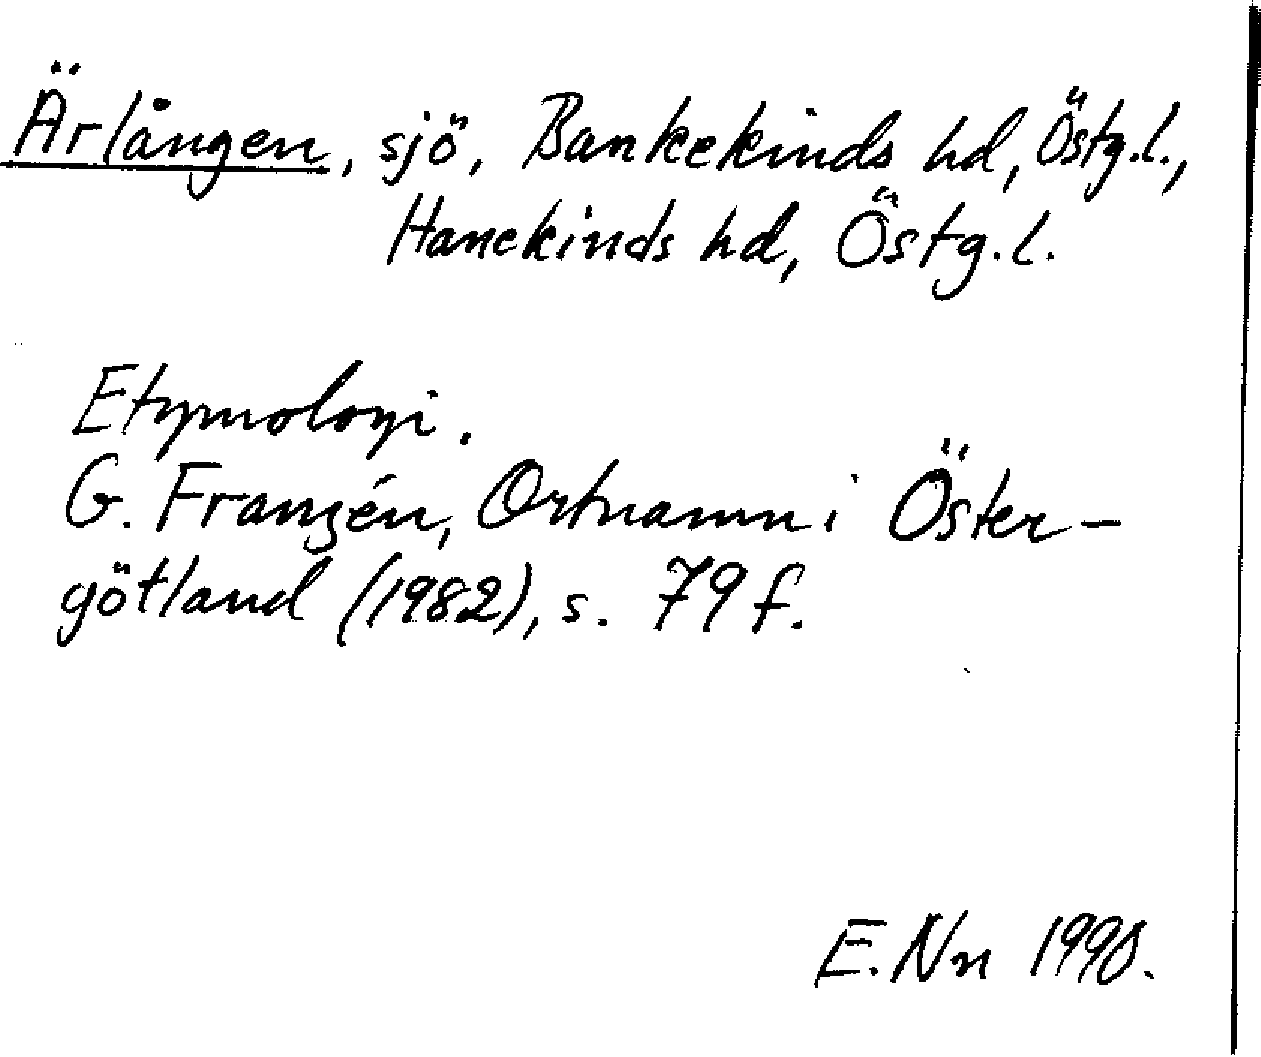 Ärlången, sjö, Bankekinds hd, Östg.l.,
Hanekinds hd, Östg.l.
Etymologi.
G. Franzén, Ortnamn i Öster-
götland (1982), s. 79 f.
E. Nn 1990.